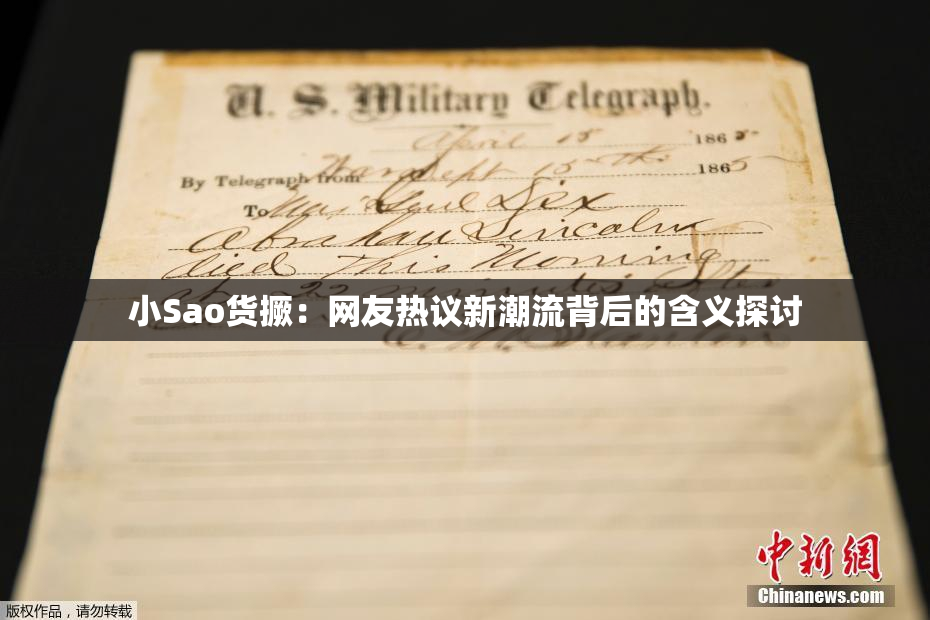 U. S. Military Telegraph.
April 15 1865
By Telegraph from War Dept 15th 1865
To Maj Genl Dix
Abraham Lincoln
died This Morning
at 22 minutes after
小Sao货撅：网友热议新潮流背后的含义探讨
E. M. Stanton
中新網
Chinanews.com
版权作品，请勿转载